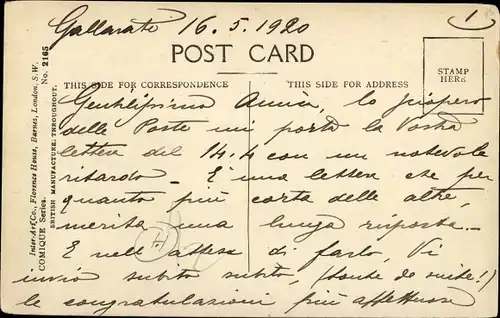 Gallarate 16.5.1920
1
POST CARD
THIS SIDE FOR CORRESPONDENCE
THIS SIDE FOR ADDRESS
STAMP
HERE
Inter-Art Co., Florence House, Barnes, London, S.W.
COMIQUE Series. No. 2165
BRITISH MANUFACTURE THROUGHOUT.
Gentilissima Annie, lo sciopero
delle Poste mi portò la Vostra
lettera del 14.4 con un notevole
ritardo - È una lettera che per
quanto più corta delle altre,
merita una lunga risposta.-
E nell'attesa di farlo, Vi
invio subito subito, (toute de suite!)
le congratulazioni più affettuose